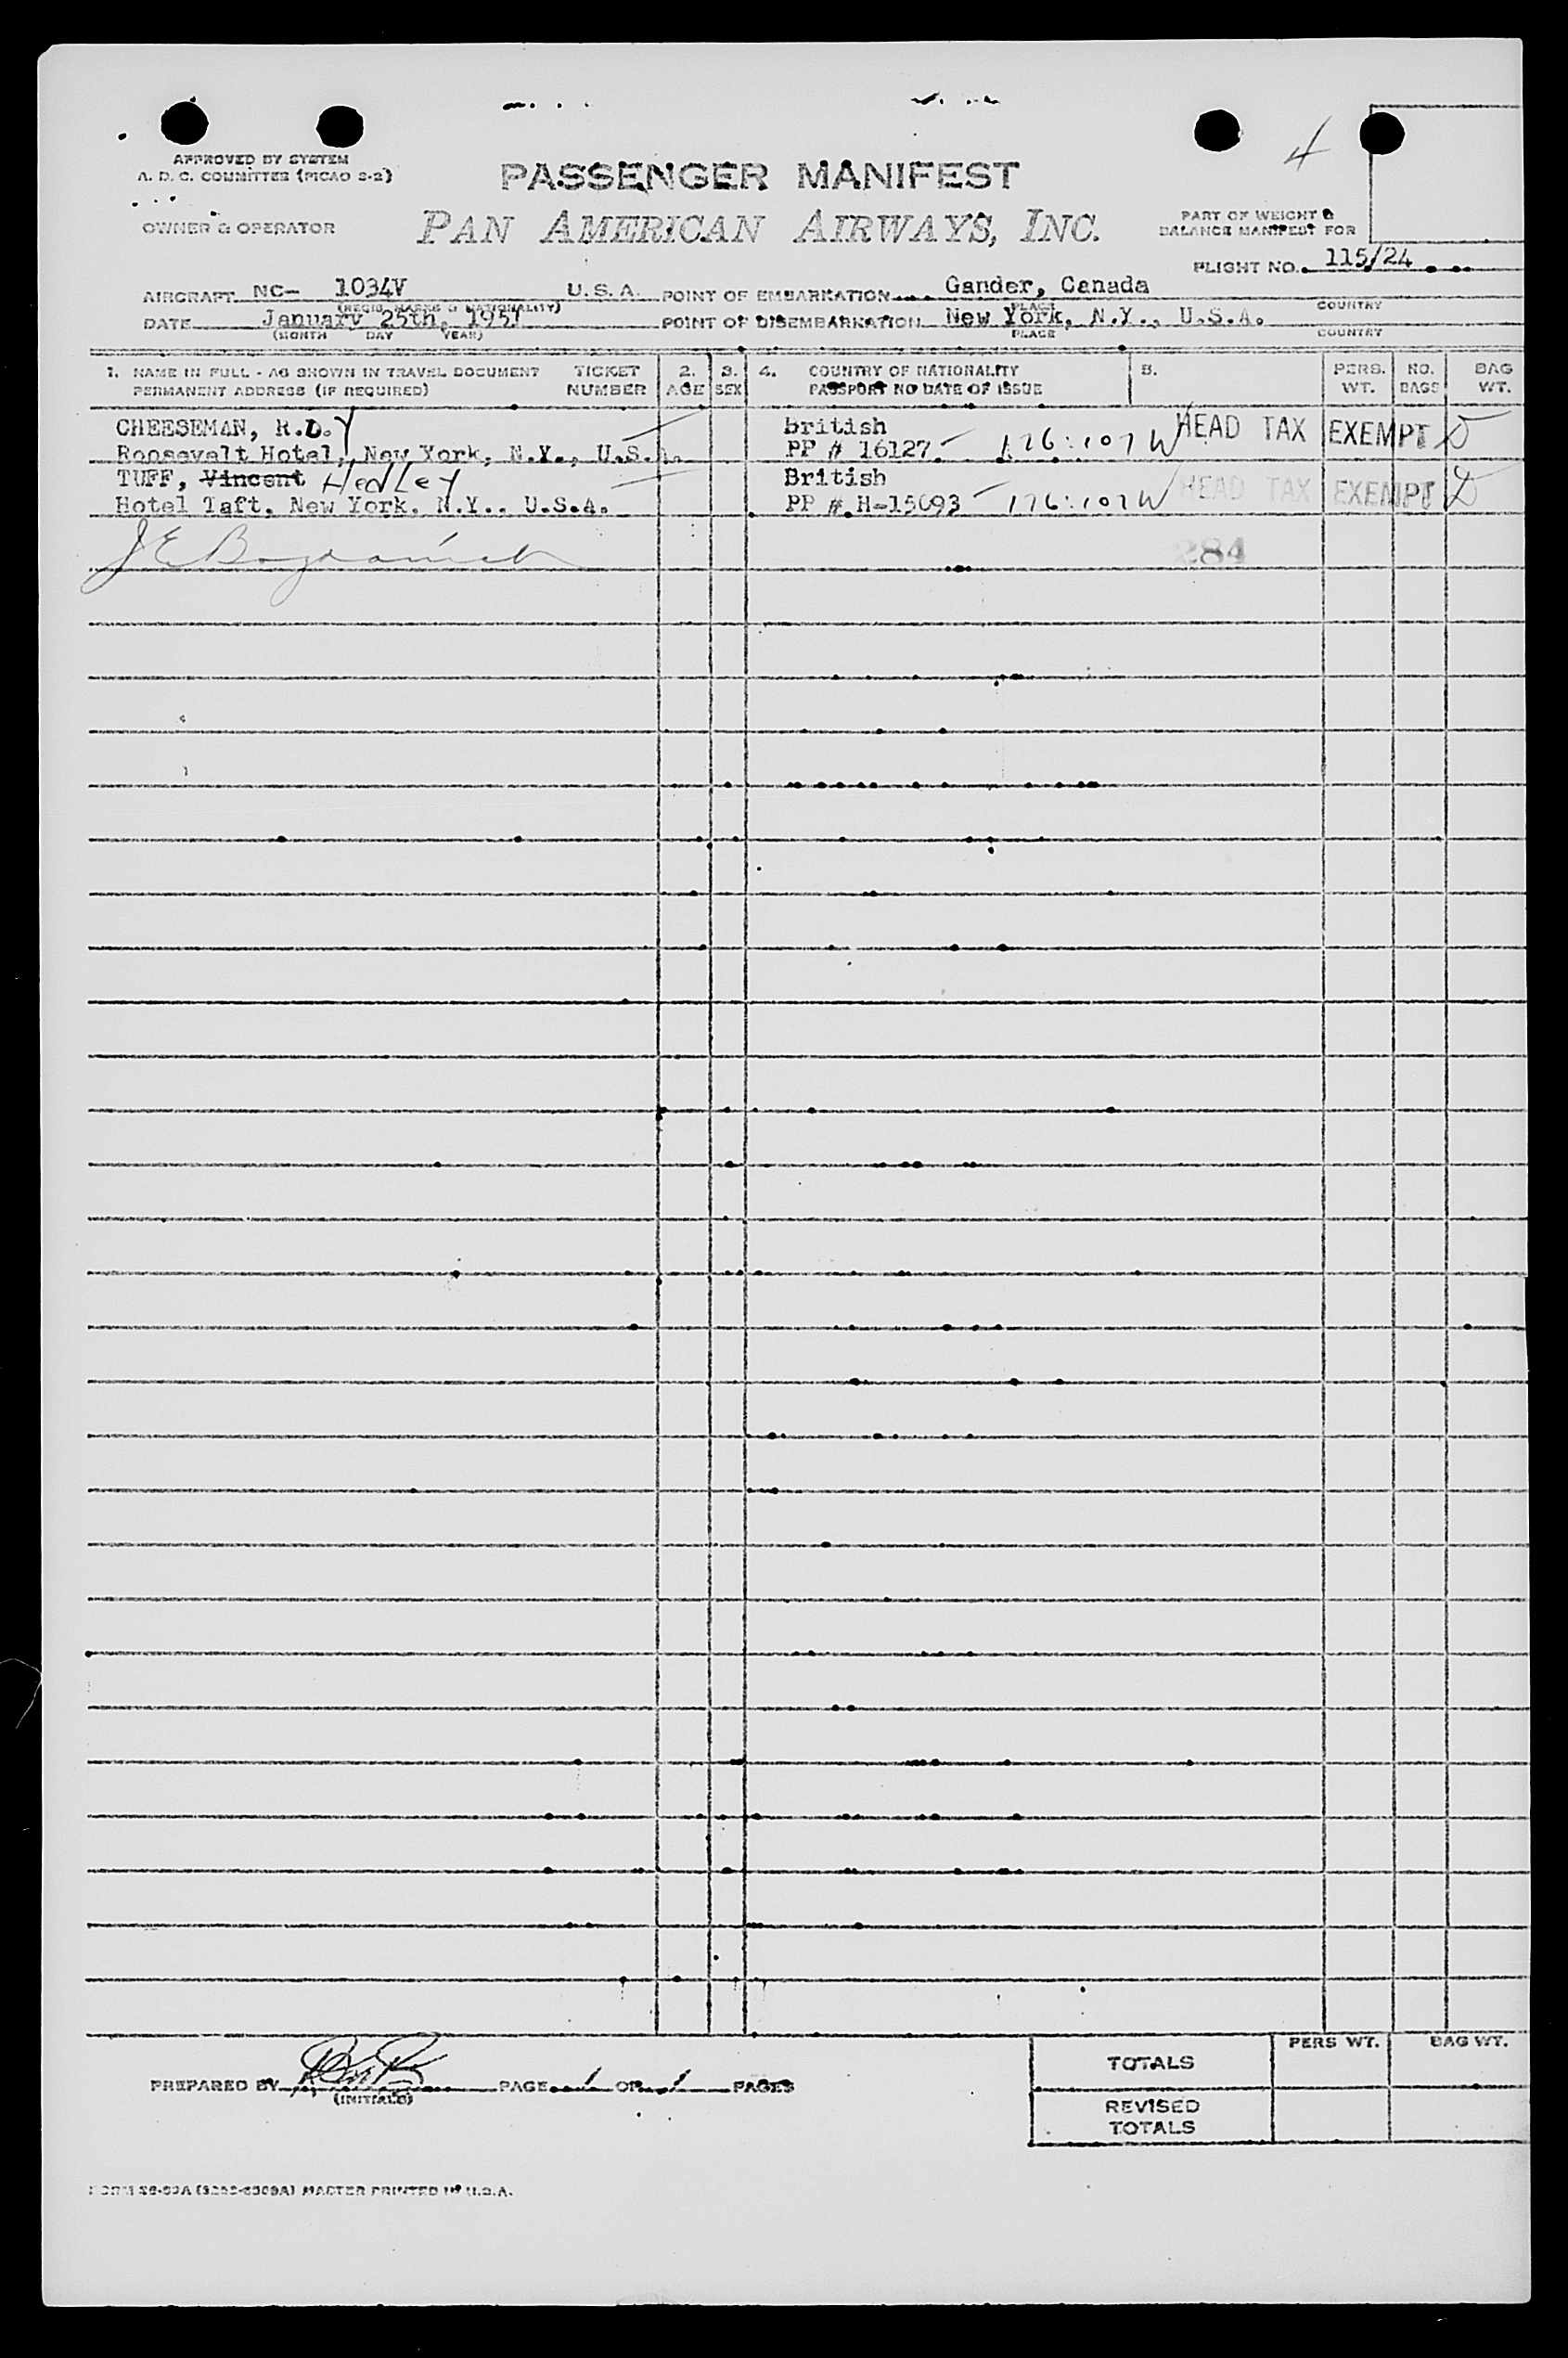 4
APPROVED BY SYSTEM
A. D. C. COMMITTEE (PICAO S-2)
PASSENGER MANIFEST
OWNER & OPERATOR
PAN AMERICAN AIRWAYS, INC.
PART OF WEIGHT &
BALANCE MANIFEST FOR
FLIGHT NO. 115/24
AIRCRAFT NC- 1034V U.S.A. POINT OF EMBARKATION Gander, Canada
(REGIS. MARKS & NATIONALITY) PLACE COUNTRY
DATE January 25th, 1951 POINT OF DISEMBARKATION New York, N.Y., U.S.A.
(MONTH DAY YEAR) PLACE COUNTRY
1. NAME IN FULL - AS SHOWN IN TRAVEL DOCUMENT TICKET 2. 3. 4. COUNTRY OF NATIONALITY 5. PERS. NO. BAG
PERMANENT ADDRESS (IF REQUIRED) NUMBER AGE SEX PASSPORT NO DATE OF ISSUE WT. BAGS WT.
CHEESEMAN, R.D.Y British HEAD TAX EXEMPT D
Roosevelt Hotel, New York, N.Y., U.S.A. PP # 16127 176:107W
TUFF, Vincent Hedley British HEAD TAX EXEMPT D
Hotel Taft, New York, N.Y., U.S.A. PP # H-15093 176:107W
284
PREPARED BY PAGE 1 OF 1 PAGES
(INITIALS)
TOTALS PERS WT. BAG WT.
REVISED
TOTALS
MASTER PRINTED IN U.S.A.